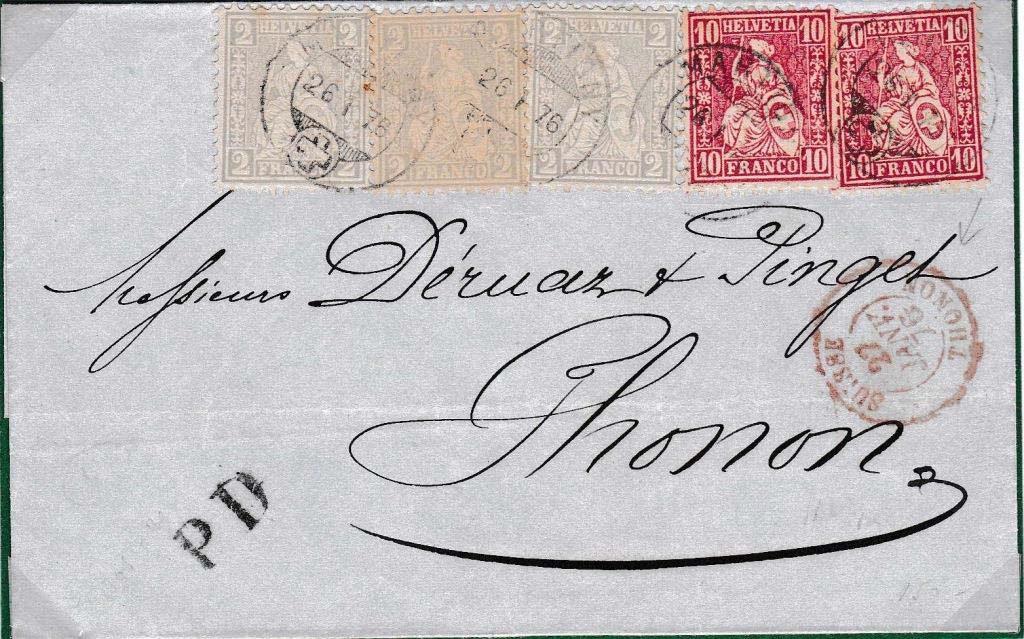 2 HELVETIA 2
2 FRANCO 2
HELVETIA
FRANCO
2 HELVETIA 2
2 FRANCO 2
10 HELVETIA 10
10 FRANCO 10
10 HELVETIA 10
10 FRANCO 10
26 I 76
26 I 76
Messieurs Déruaz & Pinget
Thonon
THONON
27
JANV
76
SUISSE
P D